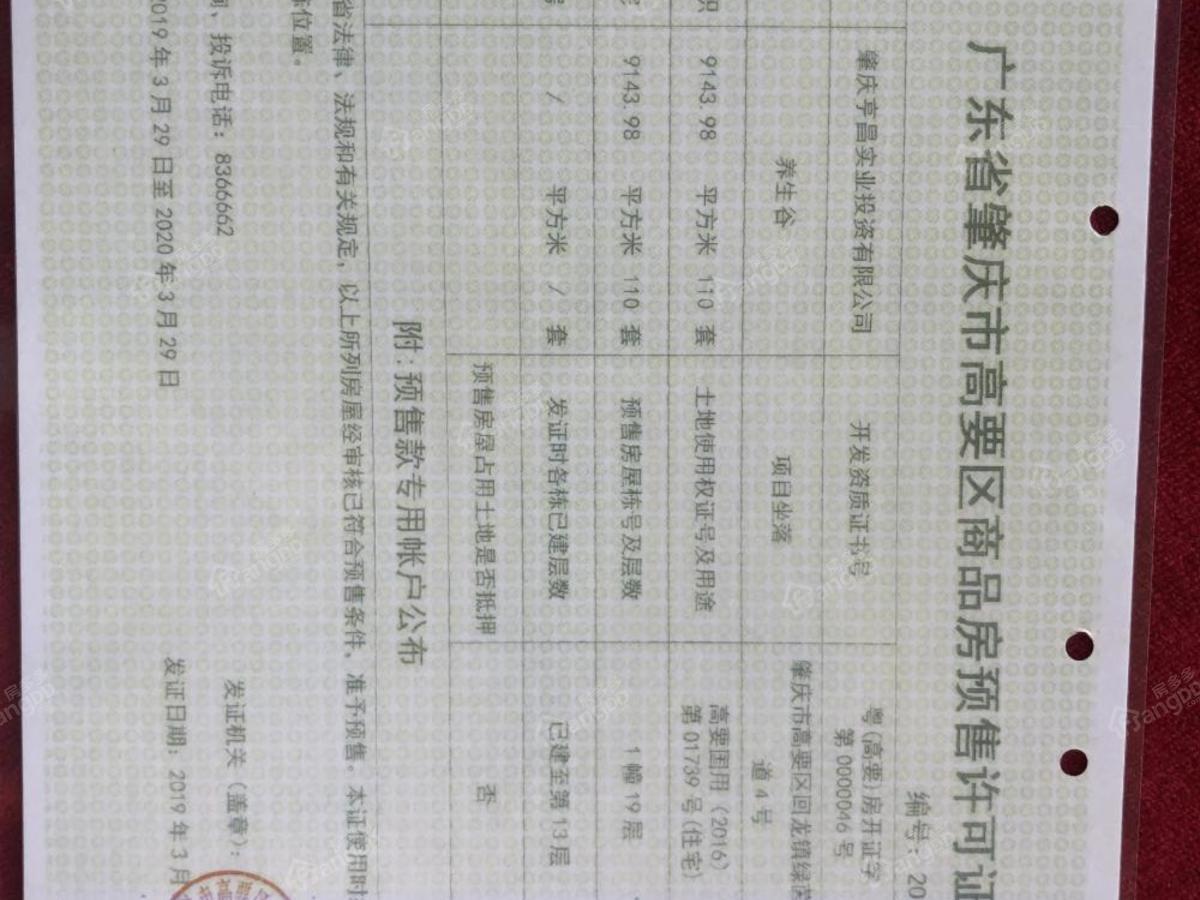 广东省肇庆市高要区商品房预售许可证
编号：20
肇庆亨昌实业投资有限公司 开发资质证书号 粤(高要)房开证字第0000046号
养生谷 项目坐落 肇庆市高要区回龙镇绿茵
道4号
积 9143.98 平方米 110 套 土地使用权证号及用途 高要国用（2016）
第01739号(住宅)
9143.98 平方米 110 套 预售房屋栋号及层数 1幢19层
/ 平方米 / 套 发证时各栋已建层数 已建至第13层
预售房屋占用土地是否抵押 否
附:预售款专用帐户公布
省法律、法规和有关规定，以上所列房屋经审核已符合预售条件，准予预售。本证使用时
位置。
，投诉电话：8366662 发证机关（盖章）：
2019年3月29日至2020年3月29日 发证日期：2019年3月